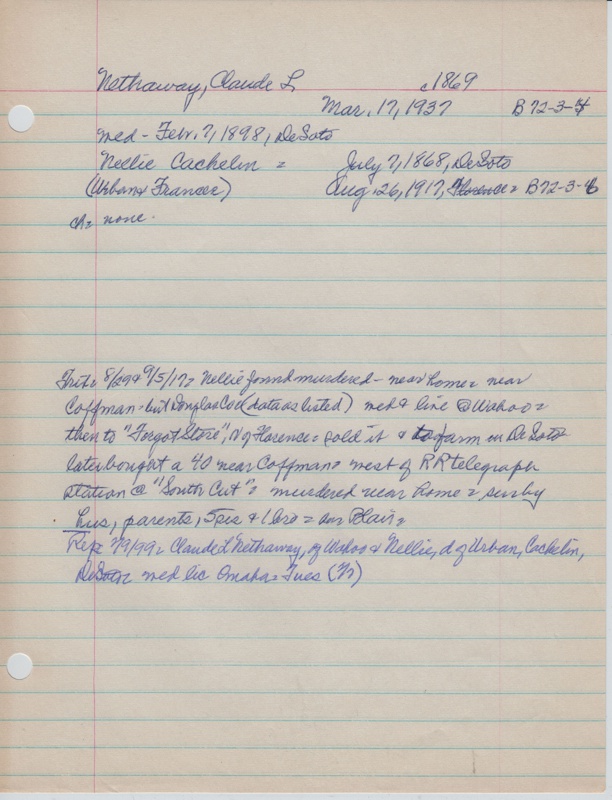 Nethaway, Claude L c1869
Mar. 17, 1937 B72-3-4
med - Febr. 7, 1898, DeSoto
Nellie Cachelin = July 7, 1868, DeSoto
(Urban & Frances) Aug. 26, 1917, Florence = B72-3-6
ch = none.
Trib = 8/29 & 9/5/17 = Nellie found murdered - near home = near
Coffman = but Douglas Co (data as listed) med & line @ Wahoo =
then to "Forgot Store", N of Florence = sold it & to farm in DeSoto
later bought a 40 near Coffman = west of RR telegraph
station @ "South Cut" = murdered near home = sur by
hus, parents, 5 sis & 1 bro = bur Blair =
Rep = 2/9/99 = Claude L Nethaway, of Wahoo & Nellie, d of Urban, Cachelin,
DeSoto = med lic Omaha = Tues